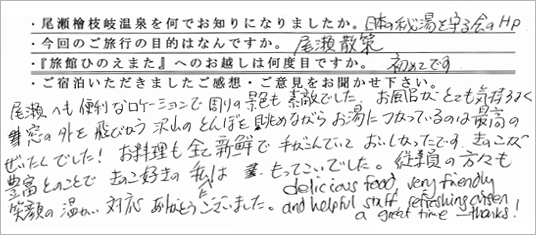 ・尾瀬檜枝岐温泉を何でお知りになりましたか。日本の秘湯を守る会のHP
・今回のご旅行の目的はなんですか。 尾瀬散策
・『旅館ひのえまた』へのお越しは何度目ですか。 初めてです
・ご宿泊いただきましたご感想・ご意見をお聞かせ下さい。
尾瀬へも便利なロケーションで周りの景色も素敵でした。お風呂がとても気持ちよく
窓の外を飛びかう沢山のとんぼを眺めながらお湯につかっているのは最高の
ぜいたくでした！お料理も全て新鮮で手がこんでいておいしかったです。きのこが
豊富とのことできのこ好きの私には もってこいでした。従業員の方々も
笑顔の温かい対応ありがとうございました。
delicious food, very friendly
and helpful staff, refreshing onsen
a great time – thanks!